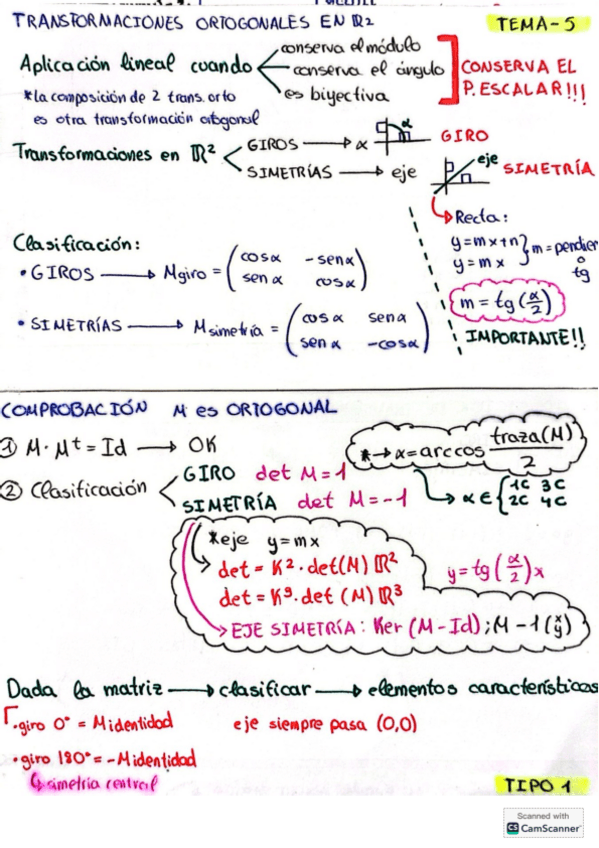 TRANSFORMACIONES ORTOGONALES EN ℝ2
TEMA-5
Aplicación lineal cuando
conserva el módulo
conserva el ángulo
es biyectiva
CONSERVA EL
P. ESCALAR!!!
*la composición de 2 trans. orto
es otra transformación ortogonal
Transformaciones en ℝ²
GIROS → α
α
GIRO
SIMETRÍAS → eje
eje
SIMETRÍA
Recta:
y=mx+n
y=mx
m=pendien
o
tg
m = tg(α/2)
IMPORTANTE!!
Clasificación:
• GIROS → Mgiro = (cosα -senα
senα cosα)
• SIMETRÍAS → Msimetría = (cosα senα
senα -cosα)
COMPROBACIÓN M es ORTOGONAL
① M·Mᵗ = Id → OK
* → α = arccos traza(M)/2
② Clasificación
GIRO det M = 1
SIMETRÍA det M = -1
→ α ∈ { 1C 3C
2C 4C
*eje y=mx
det = K²·det(M) ℝ²
det = K⁹·det(M) ℝ³
y = tg(α/2)x
EJE SIMETRÍA: Ker (M-Id); M-1(x y)
Dada la matriz → clasificar → elementos característicos
• giro 0° = Midentidad
eje siempre pasa (0,0)
• giro 180° = -Midentidad
simetría central
TIPO 1
Scanned with
CS CamScanner